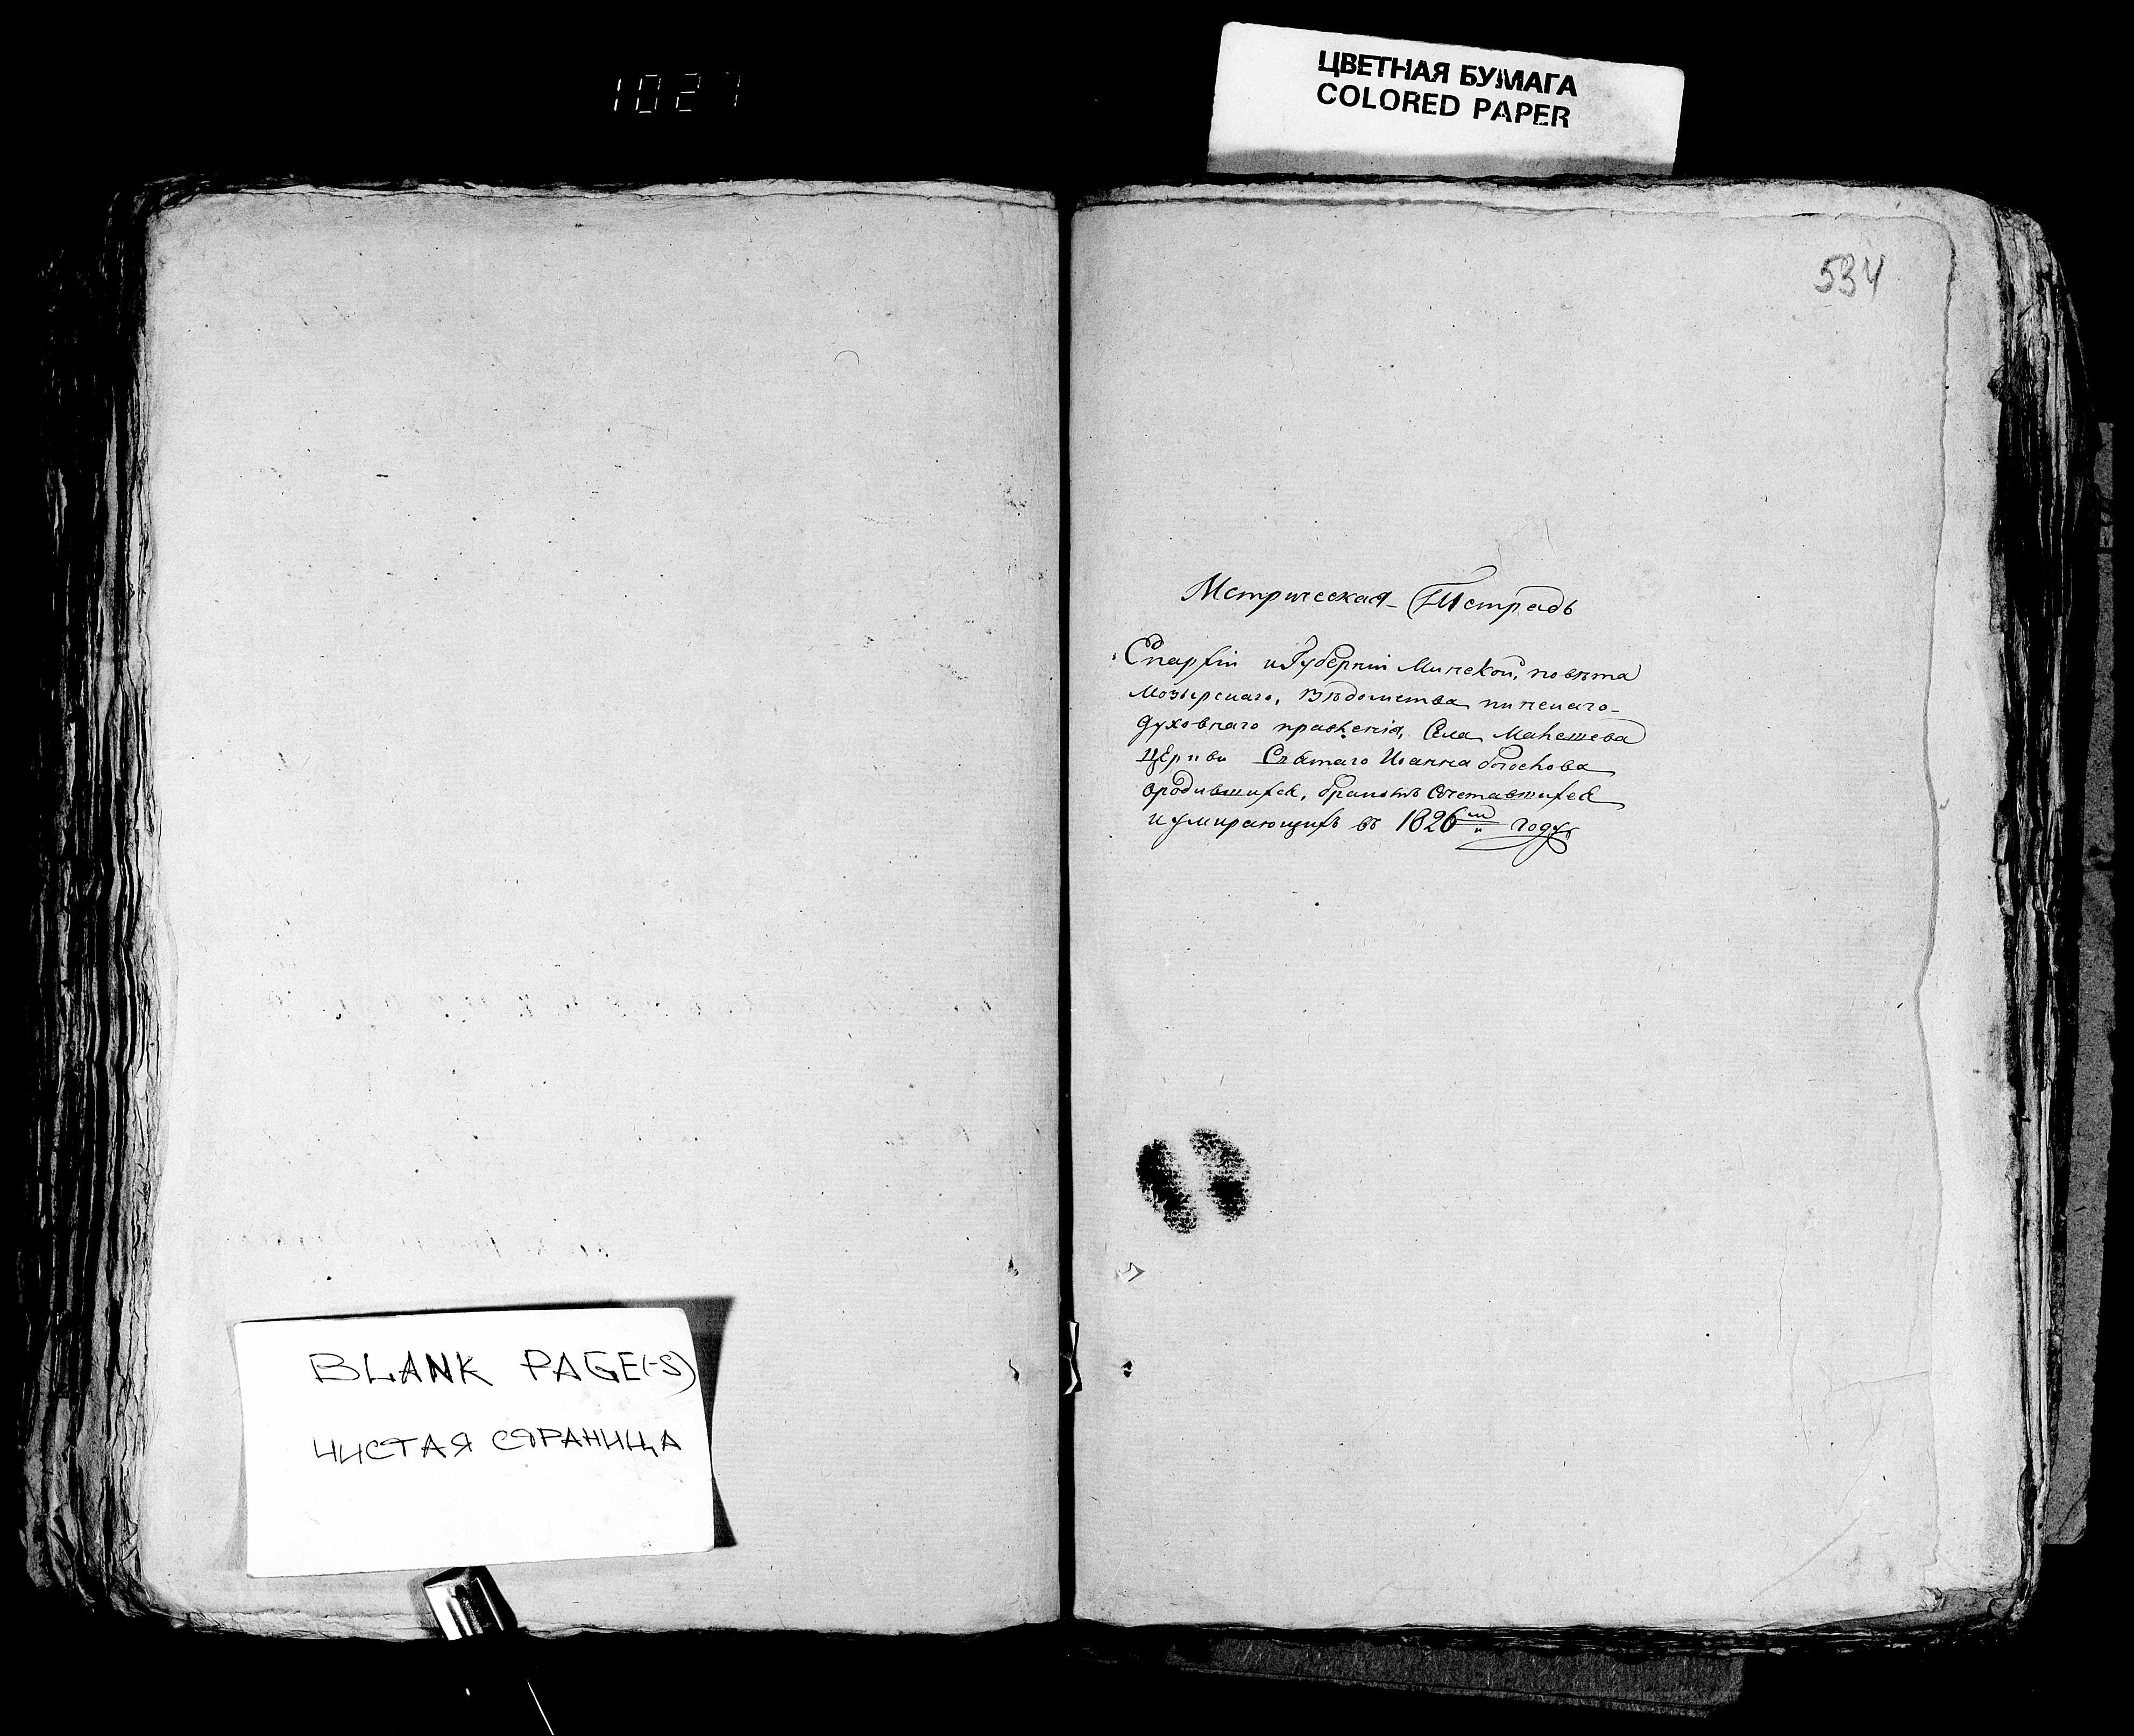 1027
ЦВЕТНАЯ БУМАГА
COLORED PAPER
534
Метрическая Тетрадь
Епархіи и Губерніи Минской, повѣта
Мозырскаго, Вѣдомства пинскаго
духовнаго правленія, Села
церкви Святаго Иоанна богослова
ородившихся, бракомъ сочетавшихся
и умирающихъ въ 1826 году
BLANK PAGE(-S)
ЧИСТАЯ СТРАНИЦА